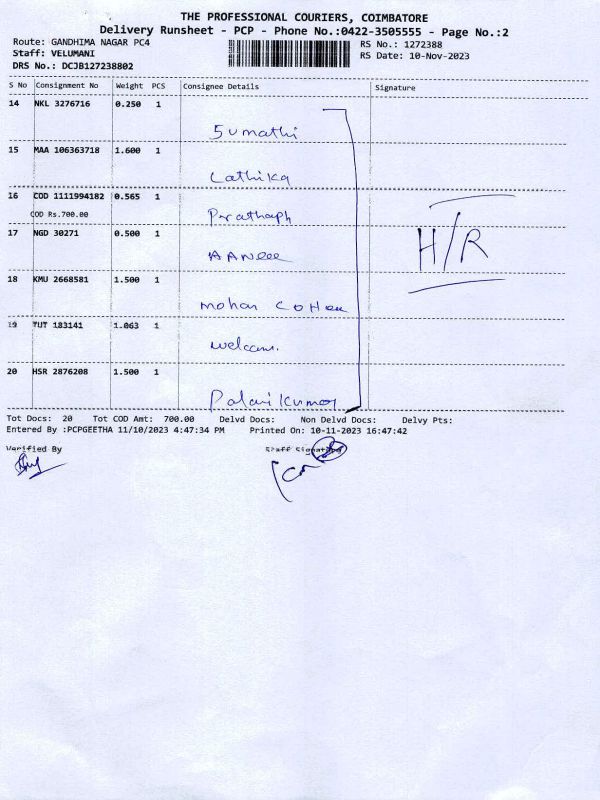 THE PROFESSIONAL COURIERS, COIMBATORE
Delivery Runsheet - PCP - Phone No.:0422-3505555 - Page No.:2
Route: GANDHIMA NAGAR PC4
RS No.: 1272388
Staff: VELUMANI
RS Date: 10-Nov-2023
DRS No.: DCJB127238802
S No Consignment No Weight PCS Consignee Details Signature
14 NKL 3276716 0.250 1
Sumathi
15 MAA 106363718 1.600 1
Lathika
16 COD 1111994182 0.565 1
COD Rs.700.00 Prathaph
17 NGD 30271 0.500 1
H/R
18 KMU 2668581 1.500 1
Mohan
19 TUT 183141 1.063 1
Welcom.
20 HSR 2876208 1.500 1
Palanikumar
Tot Docs: 20 Tot COD Amt: 700.00 Delvd Docs: Non Delvd Docs: Delvy Pts:
Entered By :PCPGEETHA 11/10/2023 4:47:34 PM Printed On: 10-11-2023 16:47:42
Verified By Staff Signature